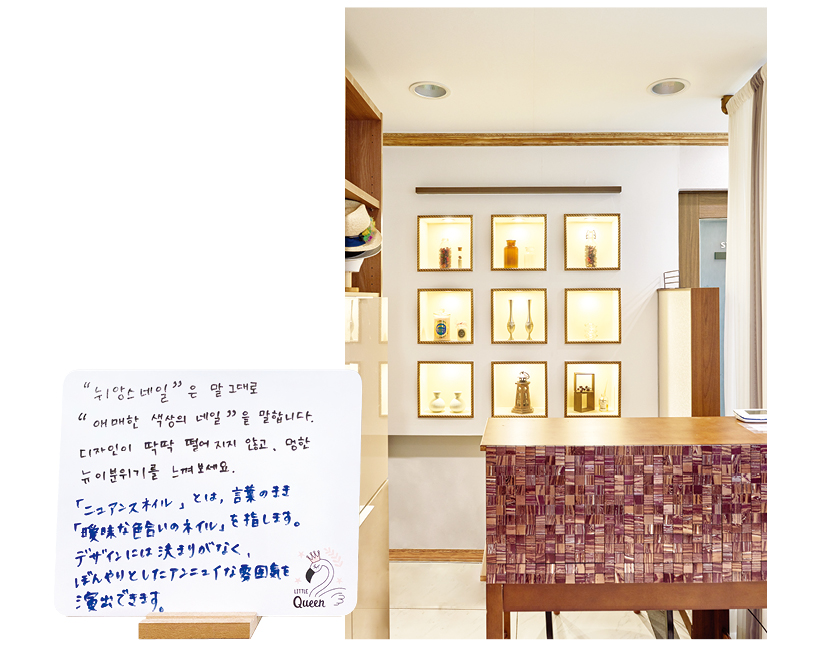 “뉘앙스네일”은 말 그대로
“애매한 색상의 네일”을 말합니다.
디자인이 딱딱 떨어지지 않고, 멍한
뉴이분위기를 느껴보세요.
「ニュアンスネイル」とは, 言葉のまま
「曖昧な色合いのネイル」を指します。
デザインには決まりがなく、
ぼんやりとしたアンニュイな雰囲気を
演出できます。
LITTLE
Queen